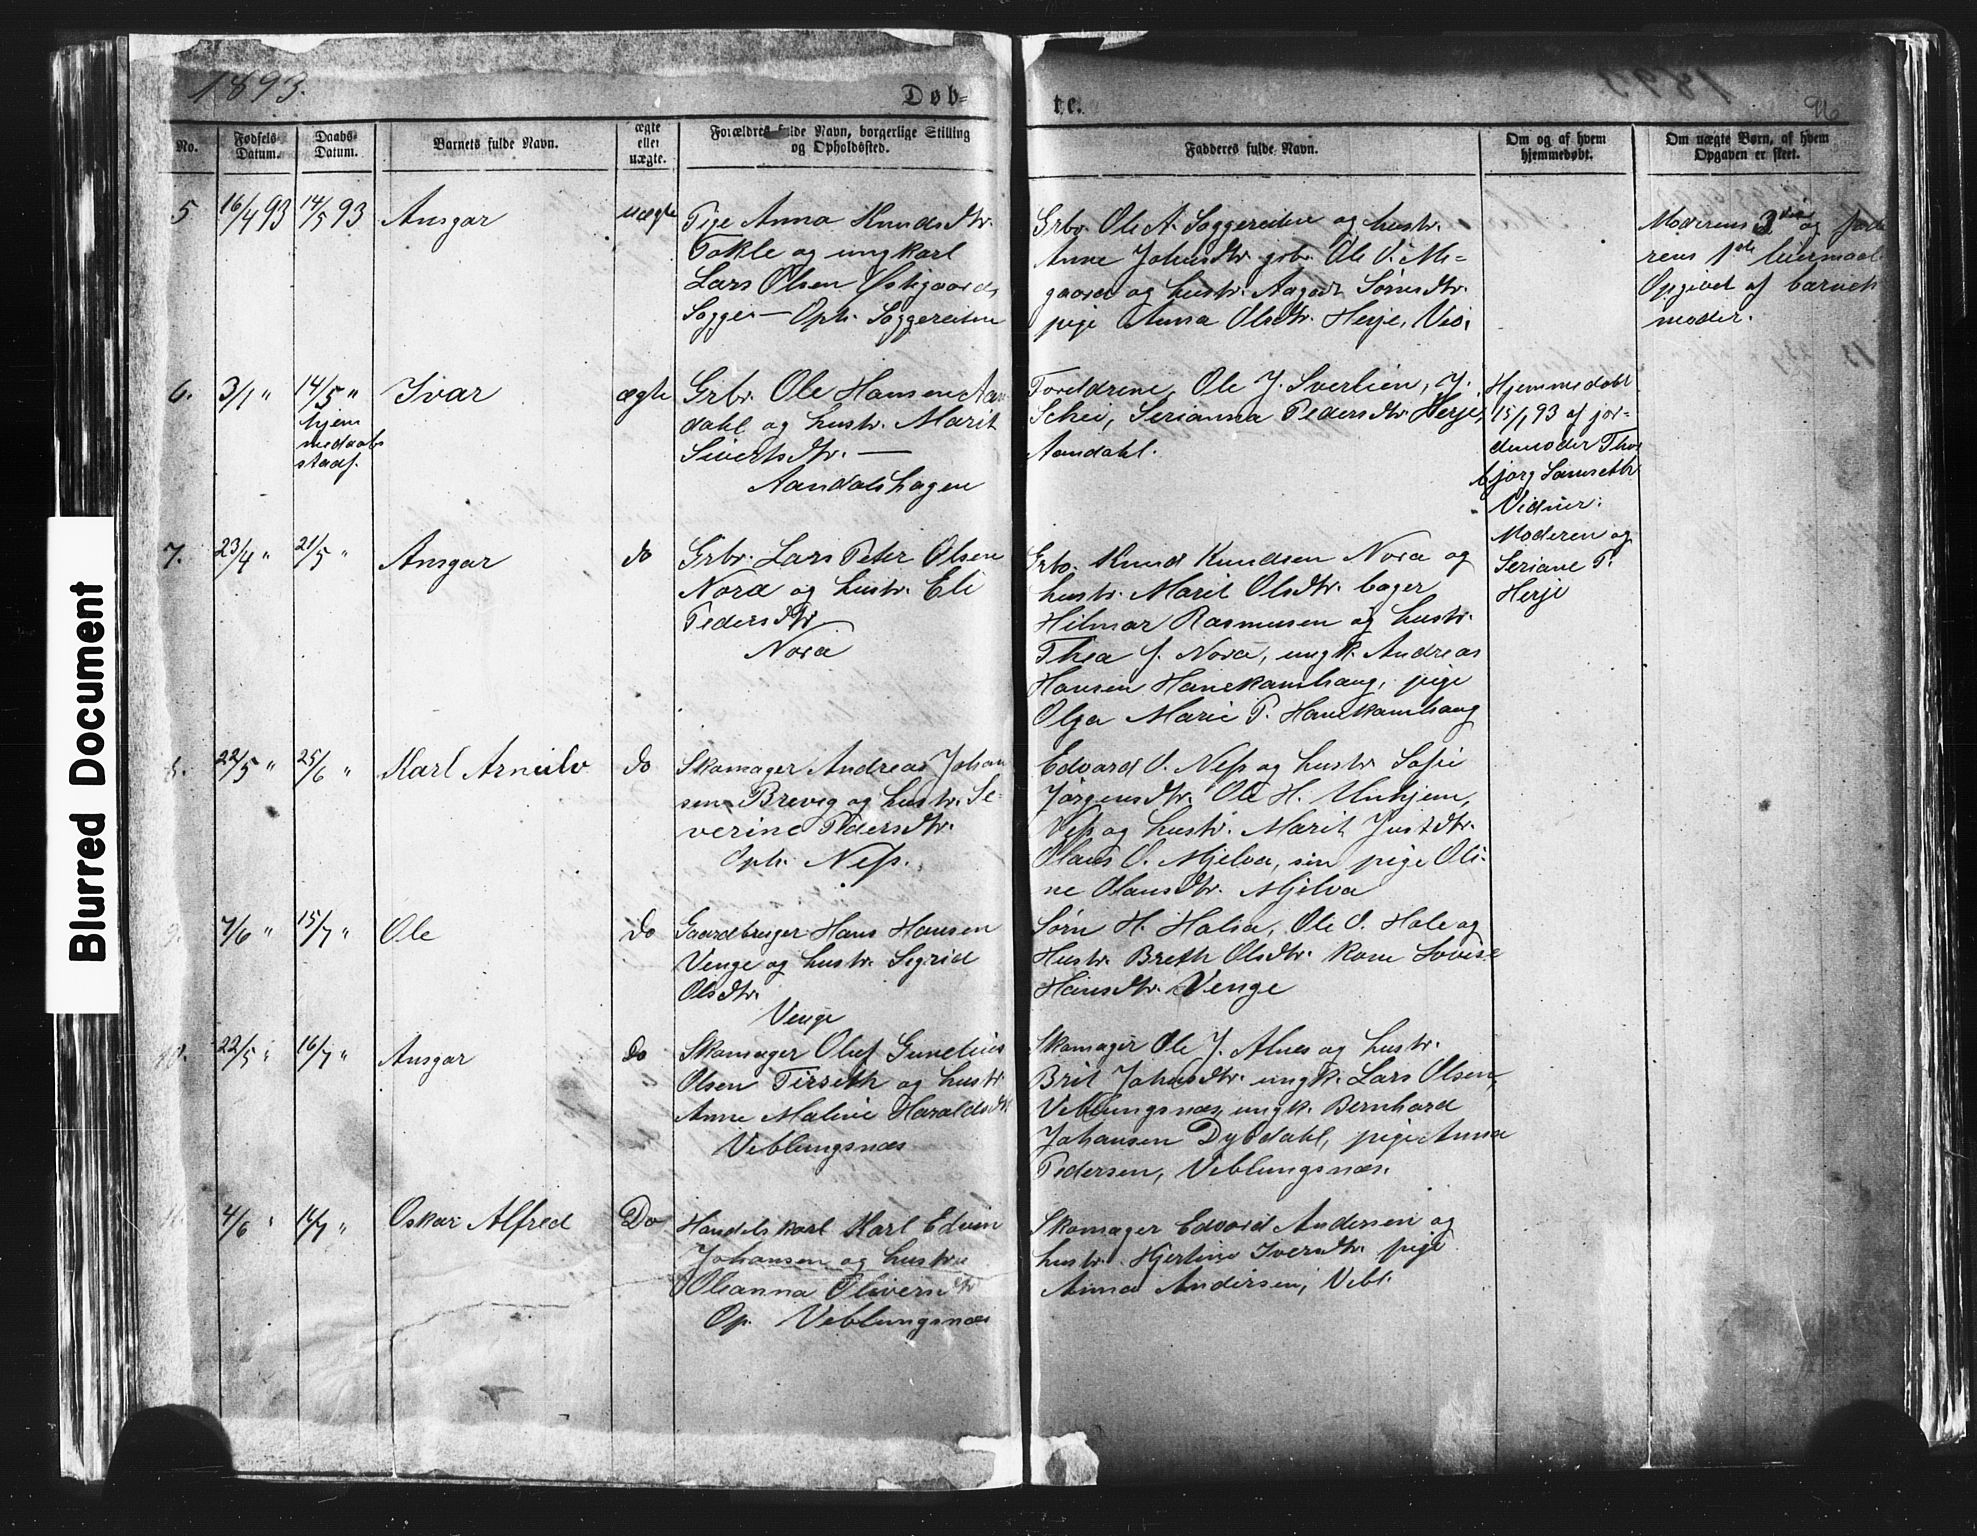 1893.
Døb=
te.
96
No.
Fødsels Datum.
Daabs- Datum.
Barnets fulde Navn.
ægte eller uægte.
Forældres fulde Navn, borgerlige Stilling og Opholdssted.
Fadderes fulde Navn.
Om og af hvem hjemmedøbt.
Om uægte Børn, af hvem Opgaven er skeet.
5
16/4 93
14/5 93
Ansgar
uægte
Pige Anna Knudsdtr.
Tokle og ungkarl
Lars Olsen Østigaards
Sogge — Oph. Soggereiten
Grbr. Ole A. Soggereiten og hustr.
Anne Johnsdtr. grbr. Ole O. Mi=
gaard og hustr. Aagodt Sørnsdtr.
pige Anna Olsdtr. Herje, Veø,
Moderens 3die og fade
rens 1ste leiermaal.
Opgivet af barnets
moder.
6.
3/1 "
14/5 "
hjem
medaabs
stadf.
Ivar
ægte
Grbr. Ole Hansen Aan
dahl og hustr. Marit
Sivertsdtr. —
Aandalshagen
Forældrene, Ole J. Sverlien, J.
Schei, Serianna Pedersdtr. Herje,
Aandahl.
Hjemmedøbt
15/1 93 af jor-
demoder Thor
bjørg Sannseth
Vidner:
Moderen og
Seriane P.
Herje
7.
23/4 "
21/5 "
Ansgar
do
Grbr. Lars Peter Olsen
Nora og hustr. Eli
Pedersdtr.
Nora
Grbr. Knud Knudsen Nora og
hustr. Marit Olsdtr. bager
Hilmar Rasmusen og hustr.
Thea f. Nora, ungk. Andreas
Hansen Hanekamhaug, pige
Olga Marie P. Hanekamhaug
8.
22/5 "
25/6 "
Karl Arnulv
do
Skomager Andreas Johan
sen Brevig og hustr. Se-
verine Pedersdtr.
Oph. Ness.
Edvard O. Ness og hustr. Sofie
Jørgensdtr. Ole H. Unhjem,
Ness og hustr. Marit Justdtr.
Olaus O. Mjelva, sin pige Oli-
ne Olausdtr. Mjelva
9.
7/6 "
15/7 "
Ole
do
Gaardbruger Hans Hansen
Venge og hustr. Sigrid
Olsdtr.
Venge
Sørn H. Halsa, Ole O. Hole og
Hustr. Breth Olsdtr. kone Lovise
Hansdtr. Venge
10.
22/5 "
16/7 "
Ansgar
do
Skomager Oluf Gunelius
Olsen Tirseth og hustr.
Anne Maline Haraldsdtr
Veblungsnæs
Skomager Ole J. Alnes og hustr.
Brit Johnsdtr. ungk. Lars Olsen,
Veblungsnæs, ungk. Bernhard
Johansen Dybdahl, pige Anna
Pedersen, Veblungsnæs.
11.
4/6 "
16/7 "
Oskar Alfred
Do
Handelskarl Karl Edvin
Johansen og hustru
Oleanna Oliversdtr
Op. Veblungsnæs
Skomager Edvard Andersen og
hustr. Hjertine Iversdtr. pige
Anna Andersen, Vebl.
Blurred Document